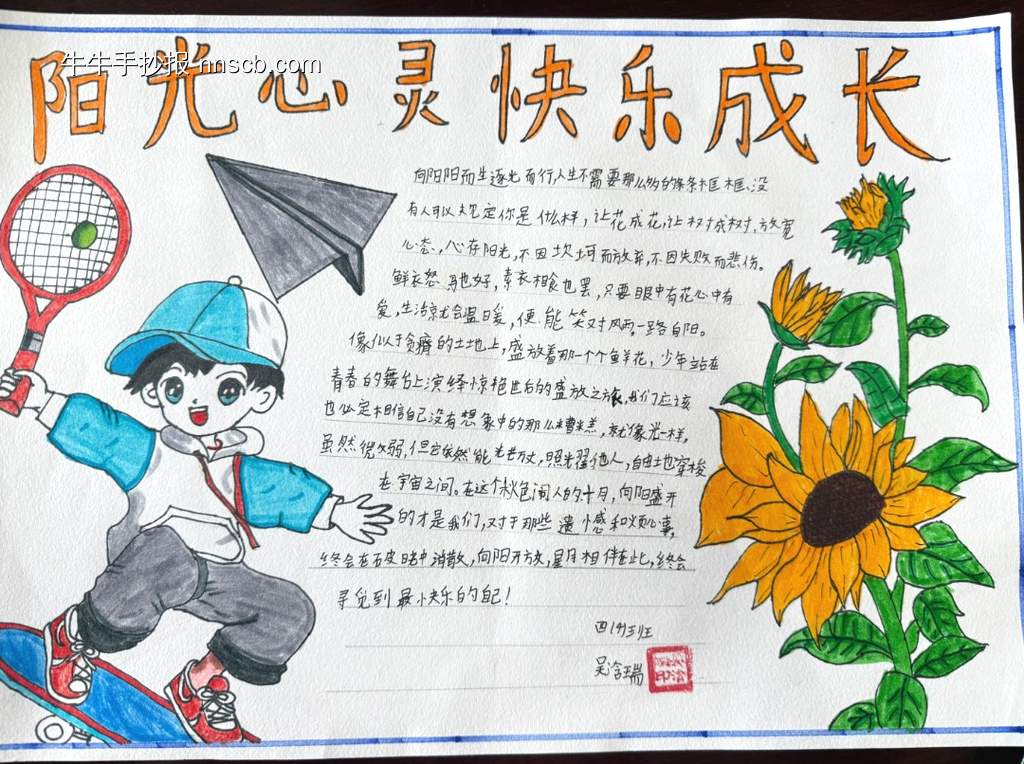 牛牛手抄报 nnscb.com
阳光心灵快乐成长
向阳而生逐光而行,人生不需要那么多的条条框框,没
有人可以规定你是什么样,让花成花,让树成树,放宽
心态,心存阳光,不因坎坷而放弃,不因失败而悲伤。
鲜衣怒马也好,素衣相食也罢,只要眼中有花心中有
爱,生活就会温暖,便能笑对风雨,一路向阳。
像似于贫瘠的土地上,盛放着那一个个鲜花,少年站在
青春的舞台上演绎惊艳世后的盛放之旅,我们应该
也必定相信自己没有想象中的那么糟糕,就像光一样,
虽然微弱,但它依然能光芒万丈,照光耀他人,自由地穿梭
在宇宙之间。在这个秋色闹人的十月,向阳盛开
的才是我们,对于那些遗憾和烦心事,
终会在皮暗中消散,向阳开放,星月相伴在此,终会
寻觅到最快乐的自己!
四(9)班
吴含瑞